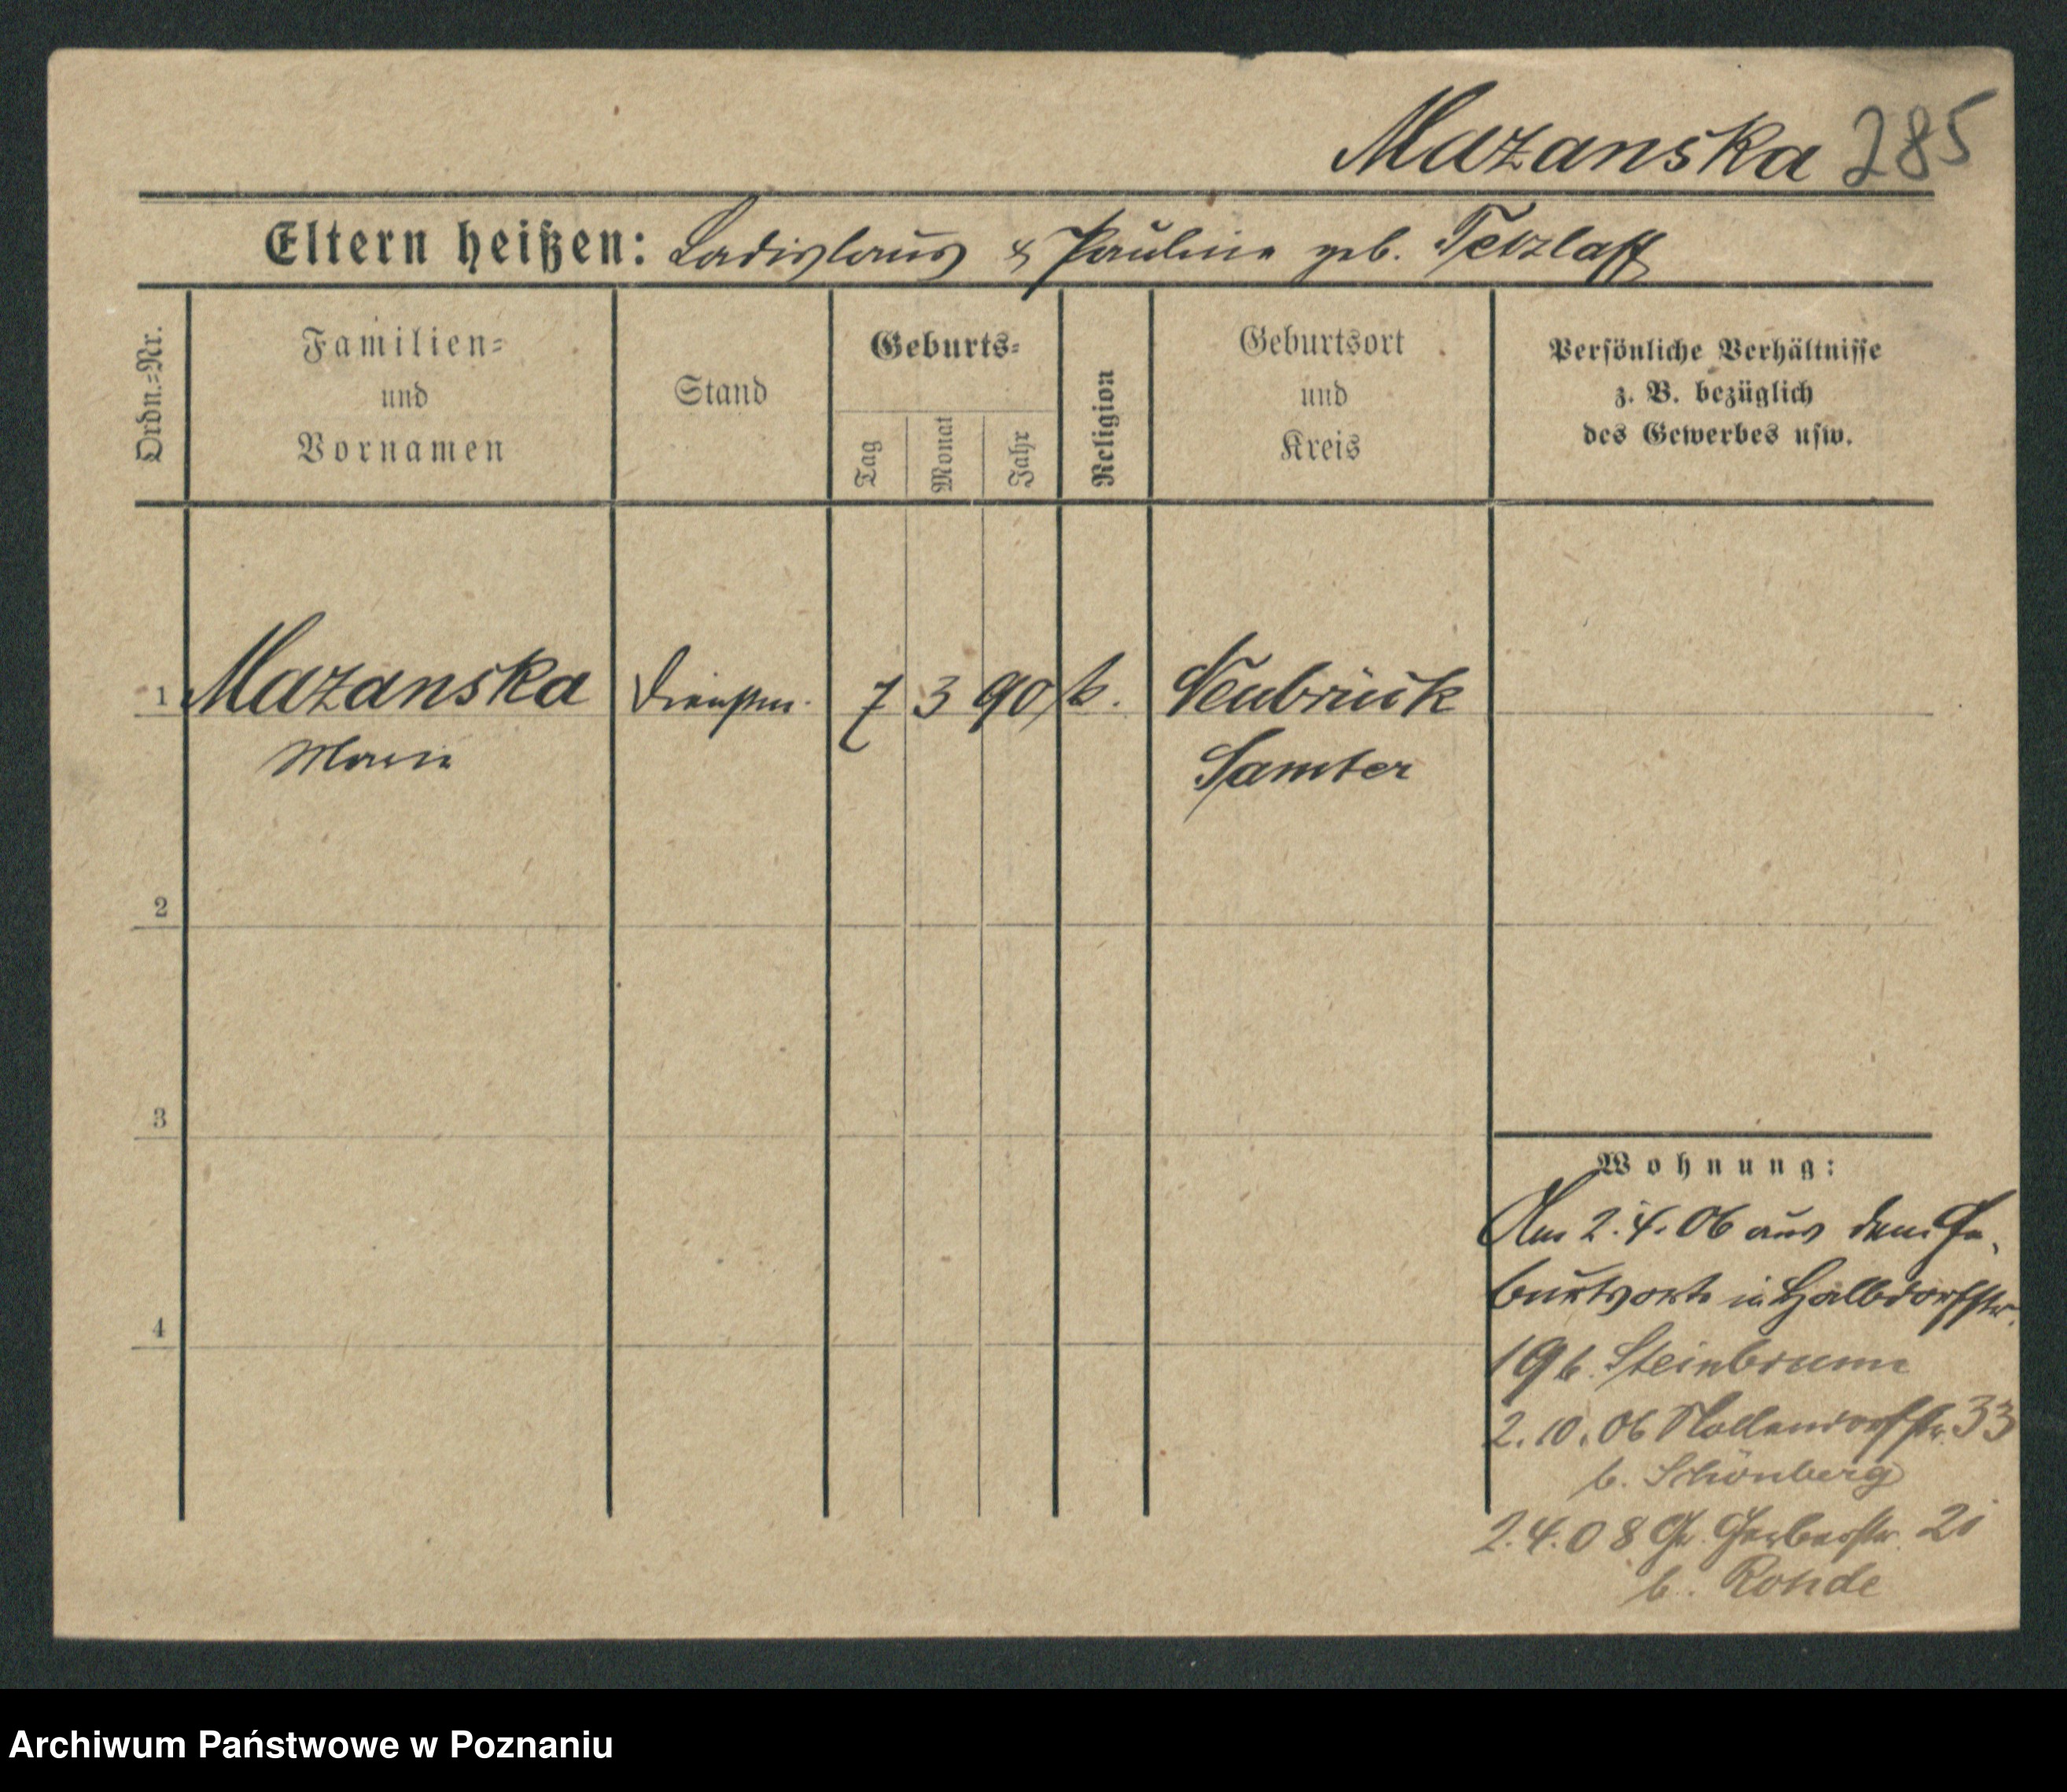 Mazanska 285
Eltern heißen: Ladislaus & Pauline geb. Tetzlaff
Ordn.-Nr.
Familien-
und
Vornamen
Stand
Geburts-
Tag
Monat
Jahr
Religion
Geburtsort
und
Kreis
Persönliche Verhältnisse
z. B. bezüglich
des Gewerbes usw.
1 Mazanska 7 3 90 k. Neubrück
Maria Samter
2
3
4
Wohnung:
Am 2.4.06 aus dem Ge-
burtsorte in Halbdorfstr.
19 b. Steinbrunn
2.10.06 Nollendorfstr. 33
b. Schönberg
2.4.08 Gr. Gerberstr. 21
b. Rohde
Archiwum Państwowe w Poznaniu